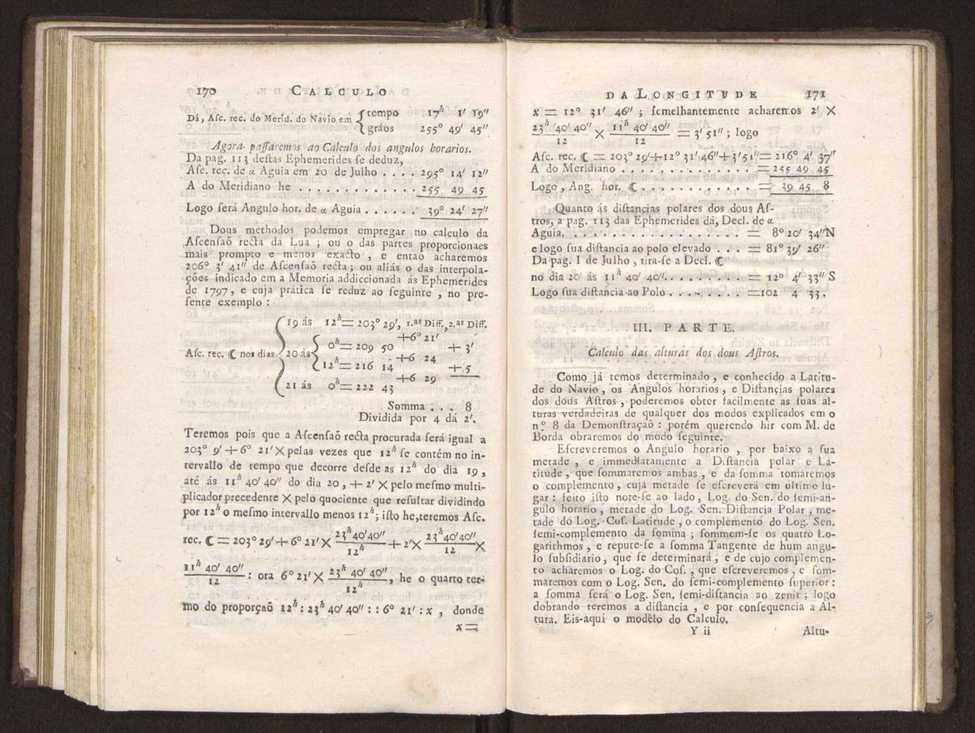 170 CALCULO
Dá, Asc. rec. do Merid. do Navio em { tempo 17ʰ 1′ 19″
gráos 255° 49′ 45″
Agora passaremos ao Calculo dos angulos horarios.
Da pag. 113 destas Ephemerides se deduz,
Asc. rec. de α Aguia em 20 de Julho . . . . 295° 14′ 12″
A do Meridiano he . . . . . . . . . . . 255 49 45
Logo será Angulo hor. de α Aguia . . . . . . 39° 24′ 27″
Dous methodos podemos empregar no calculo da
Ascensaõ recta da Lua ; ou o das partes proporcionaes
mais prompto e menos exacto , e entaõ acharemos
206° 3′ 41″ de Ascensaõ recta ; ou aliás o das interpola-
ções indicado em a Memoria addiccionada ás Ephemerides
de 1797, e cuja pratica se reduz ao seguinte , no pre-
sente exemplo :
19 ás 12ʰ = 203° 29′, 1.ᵃˢ Diff., 2.ᵃˢ Diff.
+6° 21′
Asc. rec. ☾ nos dias 20 ás 0ʰ = 209 50 + 3′
+6 24
12ʰ = 216 14 + 5
+6 29
21 ás 0ʰ = 222 43
Somma . . . 8
Dividida por 4 dá 2′.
Teremos pois que a Ascensaõ recta procurada será igual a
203° 9′ + 6° 21′ × pelas vezes que 12ʰ se contém no in-
tervallo de tempo que decorre desde as 12ʰ do dia 19 ,
até ás 11ʰ 40′ 40″ do dia 20 , + 2′ × pelo mesmo multi-
plicador precedente × pelo quociente que resultar dividindo
por 12ʰ o mesmo intervallo menos 12ʰ ; isto he, teremos Asc.
rec. ☾ = 203° 29′ + 6° 21′ × 23ʰ 40′ 40″ / 12ʰ + 2′ × 23ʰ 40′ 40″ / 12 ×
11ʰ 40′ 40″ / 12 : ora 6° 21′ × 23ʰ 40′ 40″ / 12ʰ , he o quarto ter-
mo do proporçaõ 12ʰ : 23ʰ 40′ 40″ : : 6° 21′ : x , donde
x =
DA LONGITVDE 171
x = 12° 31′ 46″ ; semelhantemente acharemos 2′ ×
23ʰ 40′ 40″ / 12 × 11ʰ 40′ 40″ / 12 = 3′ 51″ ; logo
Asc. rec. ☾ = 203° 29′ + 12° 31′ 46″ + 3′ 51″ = 216° 4′ 37″
A do Meridiano . . . . . . . . . . . . . = 255 49 45
Logo , Ang. hor. ☾ . . . . . . . . . . . . = 39 45 8
Quanto ás distancias polares dos dous As-
tros, a pag. 113 das Ephemerides dá, Decl. de α
Aguia . . . . . . . . . . . . . . . . . = 8° 20′ 34″ N
e logo sua distancia ao polo elevado . . . = 81° 39′ 26″
Da pag. I de Julho , tira-se a Decl. ☾
no dia 20 ás 11ʰ 40′ 40″ . . . . . . . . = 12° 4′ 33″ S
Logo sua distancia ao Polo . . . . . . . . = 102 4 33 .
III. PARTE.
Calculo das alturas dos dous Astros.
Como já temos determinado , e conhecido a Latitu-
de do Navio , os Angulos horarios , e Distanças polares
dos dous Astros , poderemos obter facilmente as suas al-
turas verdadeiras de qualquer dos modos explicados em o
n.° 8 da Demonstraçaõ : porém querendo hir com M. de
Borda obraremos do modo seguinte.
Escreveremos o Angulo horario , por baixo a sua
metade , e immediatamente a Distancia polar e La-
titude , que sommaremos ambas , e da somma tomaremos
o complemento , cuja metade se escreverá em ultimo lu-
gar : feito isto note-se ao lado , Log. do Sen. do semi-an-
gulo horario , metade do Log. Sen. Distancia Polar , me-
tade do Log. Cos. Latitude , o complemento do Log. Sen.
semi-complemento da somma ; sommem-se os quatro Lo-
garithmos , e repute-se a somma Tangente de hum angu-
lo subsidiario , que se determinará , e de cujo complemen-
to acharemos o Log. do Cos. , que escreveremos , e som-
maremos com o Log. Sen. do semi-complemento superior :
a somma será o Log. Sen. semi-distancia ao zenit ; logo
dobrando teremos a distancia , e por consequencia a Al-
tura. Eis-aqui o modêlo do Calculo.
Y ii Altu-